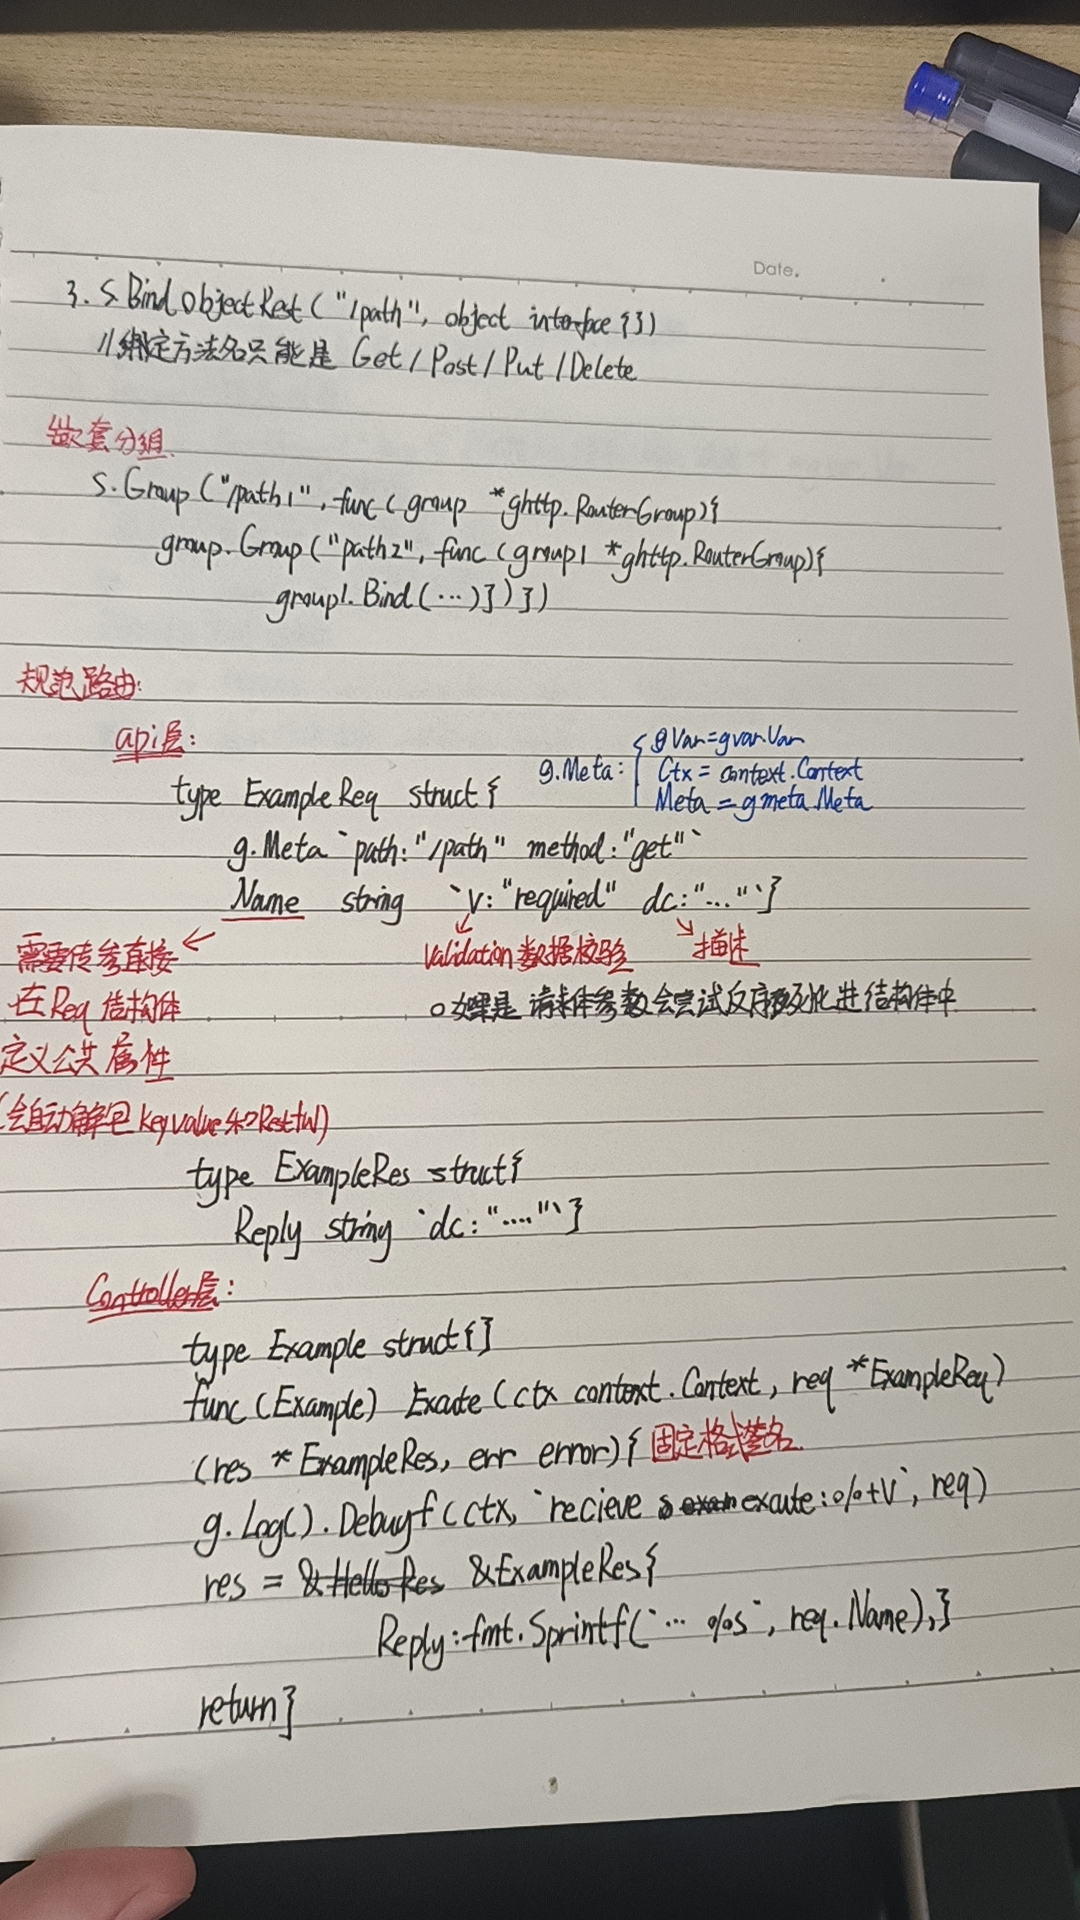 Date.
3. s.BindObjectRest("/path", object interface{})
//绑定方法名只能是 Get/Post/Put/Delete
嵌套分组.
s.Group("/path1", func(group *ghttp.RouterGroup){
group.Group("path2", func(group1 *ghttp.RouterGroup){
group1.Bind(...)})})
规范路由:
api层:
g.Meta: { gVar=gvar.Var
Ctx = context.Context
Meta = gmeta.Meta
type ExampleReq struct{
g.Meta `path:"/path" method:"get"`
Name string `v:"required" dc:"..."`}
需要传参直接
在Req结构体
定义公共属性
(会自动解包keyvalue和Restful)
Validation数据校验
描述
如果是请求体参数会尝试反序列化进结构体中
type ExampleRes struct{
Reply string `dc:"...."`}
Controller层:
type Example struct{}
func (Example) Exacute(ctx context.Context, req *ExampleReq)
(res *ExampleRes, err error){ 固定格式签名
g.Log().Debugf(ctx, `recieve exacute:%+v`, req)
res = &HelloRes &ExampleRes{
Reply:fmt.Sprintf(`... %s`, req.Name),}
return}